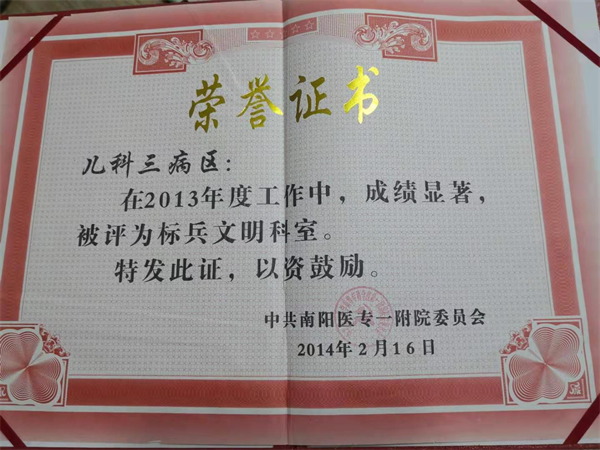 荣誉证书
儿科三病区：
在2013年度工作中，成绩显著，
被评为标兵文明科室。
特发此证，以资鼓励。
中共南阳医专一附院委员会
2014年2月16日